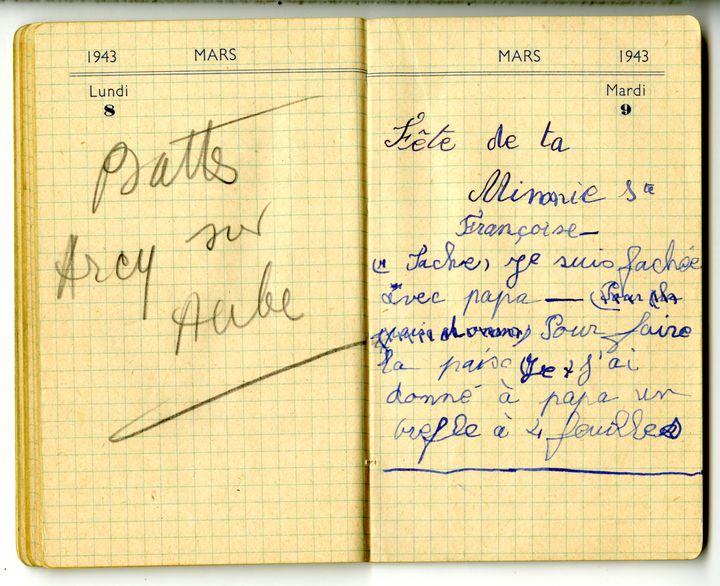 1943 MARS
Lundi
8
Arcy sur
Aube
MARS 1943
Mardi
9
Fête de ta
Minonie Ste
Françoise –
(" Sache, je suis fachée
avec papa —
Pour faire
la paise (Je x j'ai
donné à papa un
trefle à 4 feuilles